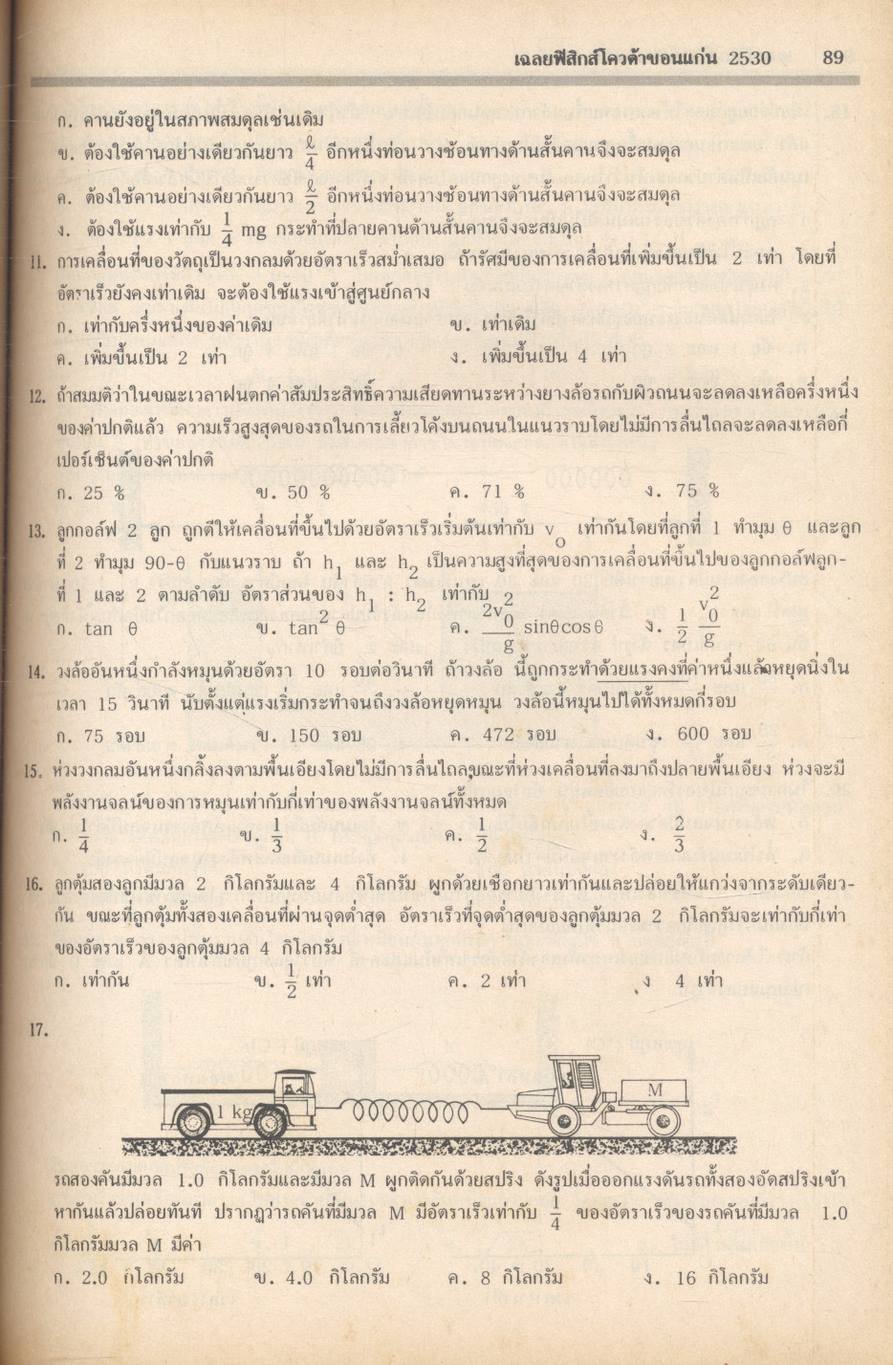 เฉลยฟิสิกส์โควต้าขอนแก่น 2530 89
ก. คานยังอยู่ในสภาพสมดุลเช่นเดิม
ข. ต้องใช้คานอย่างเดียวกันยาว ℓ/4 อีกหนึ่งท่อนวางซ้อนทางด้านสั้นคานจึงจะสมดุล
ค. ต้องใช้คานอย่างเดียวกันยาว ℓ/2 อีกหนึ่งท่อนวางซ้อนทางด้านสั้นคานจึงจะสมดุล
ง. ต้องใช้แรงเท่ากับ 1/4 mg กระทำที่ปลายคานด้านสั้นคานจึงจะสมดุล
11. การเคลื่อนที่ของวัตถุเป็นวงกลมด้วยอัตราเร็วสม่ำเสมอ ถ้ารัศมีของการเคลื่อนที่เพิ่มขึ้นเป็น 2 เท่า โดยที่
อัตราเร็วยังคงเท่าเดิม จะต้องใช้แรงเข้าสู่ศูนย์กลาง
ก. เท่ากับครึ่งหนึ่งของค่าเดิม ข. เท่าเดิม
ค. เพิ่มขึ้นเป็น 2 เท่า ง. เพิ่มขึ้นเป็น 4 เท่า
12. ถ้าสมมติว่าในขณะเวลาฝนตกค่าสัมประสิทธิ์ความเสียดทานระหว่างยางล้อรถกับผิวถนนจะลดลงเหลือครึ่งหนึ่ง
ของค่าปกติแล้ว ความเร็วสูงสุดของรถในการเลี้ยวโค้งบนถนนในแนวราบโดยไม่มีการลื่นไถลจะลดลงเหลือกี่
เปอร์เซ็นต์ของค่าปกติ
ก. 25 % ข. 50 % ค. 71 % ง. 75 %
13. ลูกกอล์ฟ 2 ลูก ถูกตีให้เคลื่อนที่ขึ้นไปด้วยอัตราเร็วเริ่มต้นเท่ากับ v₀ เท่ากันโดยที่ลูกที่ 1 ทำมุม θ และลูก
ที่ 2 ทำมุม 90-θ กับแนวราบ ถ้า h₁ และ h₂ เป็นความสูงที่สุดของการเคลื่อนที่ขึ้นไปของลูกกอล์ฟลูก-
ที่ 1 และ 2 ตามลำดับ อัตราส่วนของ h₁ : h₂ เท่ากับ
ก. tan θ ข. tan² θ ค. 2v₀²/g sinθcosθ ง. 1/2 v₀²/g
14. วงล้ออันหนึ่งกำลังหมุนด้วยอัตรา 10 รอบต่อวินาที ถ้าวงล้อ นี้ถูกกระทำด้วยแรงคงที่ค่าหนึ่งแล้วหยุดนิ่งใน
เวลา 15 วินาที นับตั้งแต่แรงเริ่มกระทำจนถึงวงล้อหยุดหมุน วงล้อนี้หมุนไปได้ทั้งหมดกี่รอบ
ก. 75 รอบ ข. 150 รอบ ค. 472 รอบ ง. 600 รอบ
15. ห่วงวงกลมอันหนึ่งกลิ้งลงตามพื้นเอียงโดยไม่มีการลื่นไถลขณะที่ห่วงเคลื่อนที่ลงมาถึงปลายพื้นเอียง ห่วงจะมี
พลังงานจลน์ของการหมุนเท่ากับกี่เท่าของพลังงานจลน์ทั้งหมด
ก. 1/4 ข. 1/3 ค. 1/2 ง. 2/3
16. ลูกตุ้มสองลูกมีมวล 2 กิโลกรัมและ 4 กิโลกรัม ผูกด้วยเชือกยาวเท่ากันและปล่อยให้แกว่งจากระดับเดียว-
กัน ขณะที่ลูกตุ้มทั้งสองเคลื่อนที่ผ่านจุดต่ำสุด อัตราเร็วที่จุดต่ำสุดของลูกตุ้มมวล 2 กิโลกรัมจะเท่ากับกี่เท่า
ของอัตราเร็วของลูกตุ้มมวล 4 กิโลกรัม
ก. เท่ากัน ข. 1/2 เท่า ค. 2 เท่า ง 4 เท่า
17.
1 kg M
รถสองคันมีมวล 1.0 กิโลกรัมและมีมวล M ผูกติดกันด้วยสปริง ดังรูปเมื่อออกแรงดันรถทั้งสองอัดสปริงเข้า
หากันแล้วปล่อยทันที ปรากฏว่ารถคันที่มีมวล M มีอัตราเร็วเท่ากับ 1/4 ของอัตราเร็วของรถคันที่มีมวล 1.0
กิโลกรัมมวล M มีค่า
ก. 2.0 กิโลกรัม ข. 4.0 กิโลกรัม ค. 8 กิโลกรัม ง. 16 กิโลกรัม